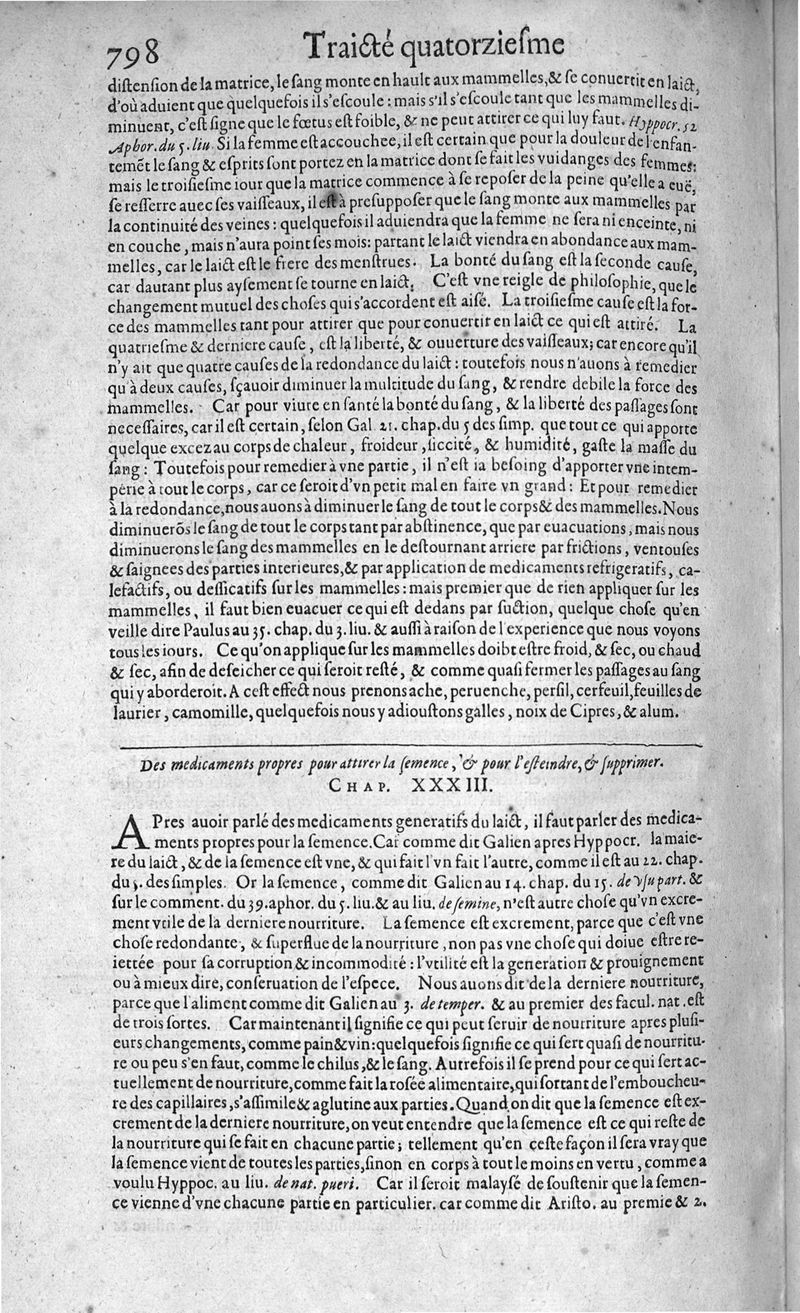 798 Traicté quatorziesme
distension de la matrice, le sang monte en hault aux mammelles,& se conuertit en laict,
d'où aduient que quelquefois il s'escoule : mais s'il s'escoule tant que les mammelles di-
minuent, c'est signe que le fœtus est foible, & ne peut attirer ce qui luy faut. Hyppocr. 52
Aphor. du 5. liu. Si la femme est accouchee, il est certain que pour la douleur de l'enfan-
temẽt le sang & esprits sont portez en la matrice dont se fait les vuidanges des femmes:
mais le troisiesme iour que la matrice commence à se reposer de la peine qu'elle a euë,
se resserre auec ses vaisseaux, il est à presupposer que le sang monte aux mammelles par
la continuité des veines : quelquefois il aduiendra que la femme ne sera ni enceinte, ni
en couche, mais n'aura point ses mois: partant le laict viendra en abondance aux mam-
melles, car le laict est le frere des menstrues. La bonté du sang est la seconde cause,
car dautant plus aysement se tourne en laict. C'est vne reigle de philosophie, que le
changement mutuel des choses qui s'accordent est aisé. La troisiesme cause est la for-
ce des mammelles tant pour attirer que pour conuertir en laict ce qui est attiré. La
quatriesme & derniere cause, est la liberté, & ouuerture des vaisseaux; car encore qu'il
n'y ait que quatre causes de la redondance du laict : toutefois nous n'auons à remedier
qu'à deux causes, sçauoir diminuer la multitude du sang, & rendre debile la force des
mammelles. Car pour viure en santé la bonté du sang, & la liberté des passages sont
necessaires, car il est certain, selon Gal 21. chap. du 5 des simp. que tout ce qui apporte
quelque excez au corps de chaleur, froideur, siccité, & humidité, gaste la masse du
sang : Toutefois pour remedier à vne partie, il n'est ia besoing d'apporter vne intem-
perie à tout le corps, car ce seroit d'vn petit mal en faire vn grand : Et pour remedier
à la redondance, nous auons à diminuer le sang de tout le corps & des mammelles. Nous
diminuerõs le sang de tout le corps tant par abstinence, que par euacuations, mais nous
diminuerons le sang des mammelles en le destournant arriere par frictions, ventouses
& saignees des parties interieures, & par application de medicaments refrigeratifs, ca-
lefactifs, ou dessicatifs sur les mammelles : mais premier que de rien appliquer sur les
mammelles, il faut bien euacuer ce qui est dedans par suction, quelque chose qu'en
veille dire Paulus au 35. chap. du 3. liu. & aussi à raison de l'experience que nous voyons
tous les iours. Ce qu'on applique sur les mammelles doibt estre froid, & sec, ou chaud
& sec, afin de deseicher ce qui seroit resté, & comme quasi fermer les passages au sang
qui y aborderoit. A cest effect nous prenons ache, peruenche, persil, cerfeuil, feuilles de
laurier, camomille, quelquefois nous y adioustons galles, noix de Cipres, & alum.
Des medicaments propres pour attirer la semence, & pour l'esteindre, & supprimer.
CHAP. XXXIII.
APres auoir parlé des medicaments generatifs du laict, il faut parler des medica-
ments propres pour la semence. Car comme dit Galien apres Hyppocr. la matie-
re du laict, & de la semence est vne, & qui fait l'vn fait l'autre, comme il est au 22. chap.
du 5. des simples. Or la semence, comme dit Galien au 14. chap. du 15. de vsu part. &
sur le comment. du 39. aphor. du 5. liu. & au liu. de semine, n'est autre chose qu'vn excre-
ment vtile de la derniere nourriture. La semence est excrement, parce que c'est vne
chose redondante, & superflue de la nourriture, non pas vne chose qui doiue estre re-
iettée pour sa corruption & incommodité : l'vtilité est la generation & prouignement
ou à mieux dire, conseruation de l'espece. Nous auons dit de la derniere nourriture,
parce que l'aliment comme dit Galien au 3. de temper. & au premier des facul. nat. est
de trois sortes. Car maintenant il signifie ce qui peut seruir de nourriture apres plusi-
eurs changements, comme pain & vin: quelquefois signifie ce qui sert quasi de nourritu-
re ou peu s'en faut, comme le chilus, & le sang. Autrefois il se prend pour ce qui sert ac-
tuellement de nourriture, comme fait la rosée alimentaire, qui sortant de l'emboucheu-
re des capillaires, s'assimile & aglutine aux parties. Quand on dit que la semence est ex-
crement de la derniere nourriture, on veut entendre que la semence est ce qui reste de
la nourriture qui se fait en chacune partie; tellement qu'en ceste façon il sera vray que
la semence vient de toutes les parties, sinon en corps à tout le moins en vertu, comme a
voulu Hyppoc. au liu. de nat. pueri. Car il seroit malaysé de soustenir que la semen-
ce vienne d'vne chacune partie en particulier. car comme dit Aristo. au premie & 2.